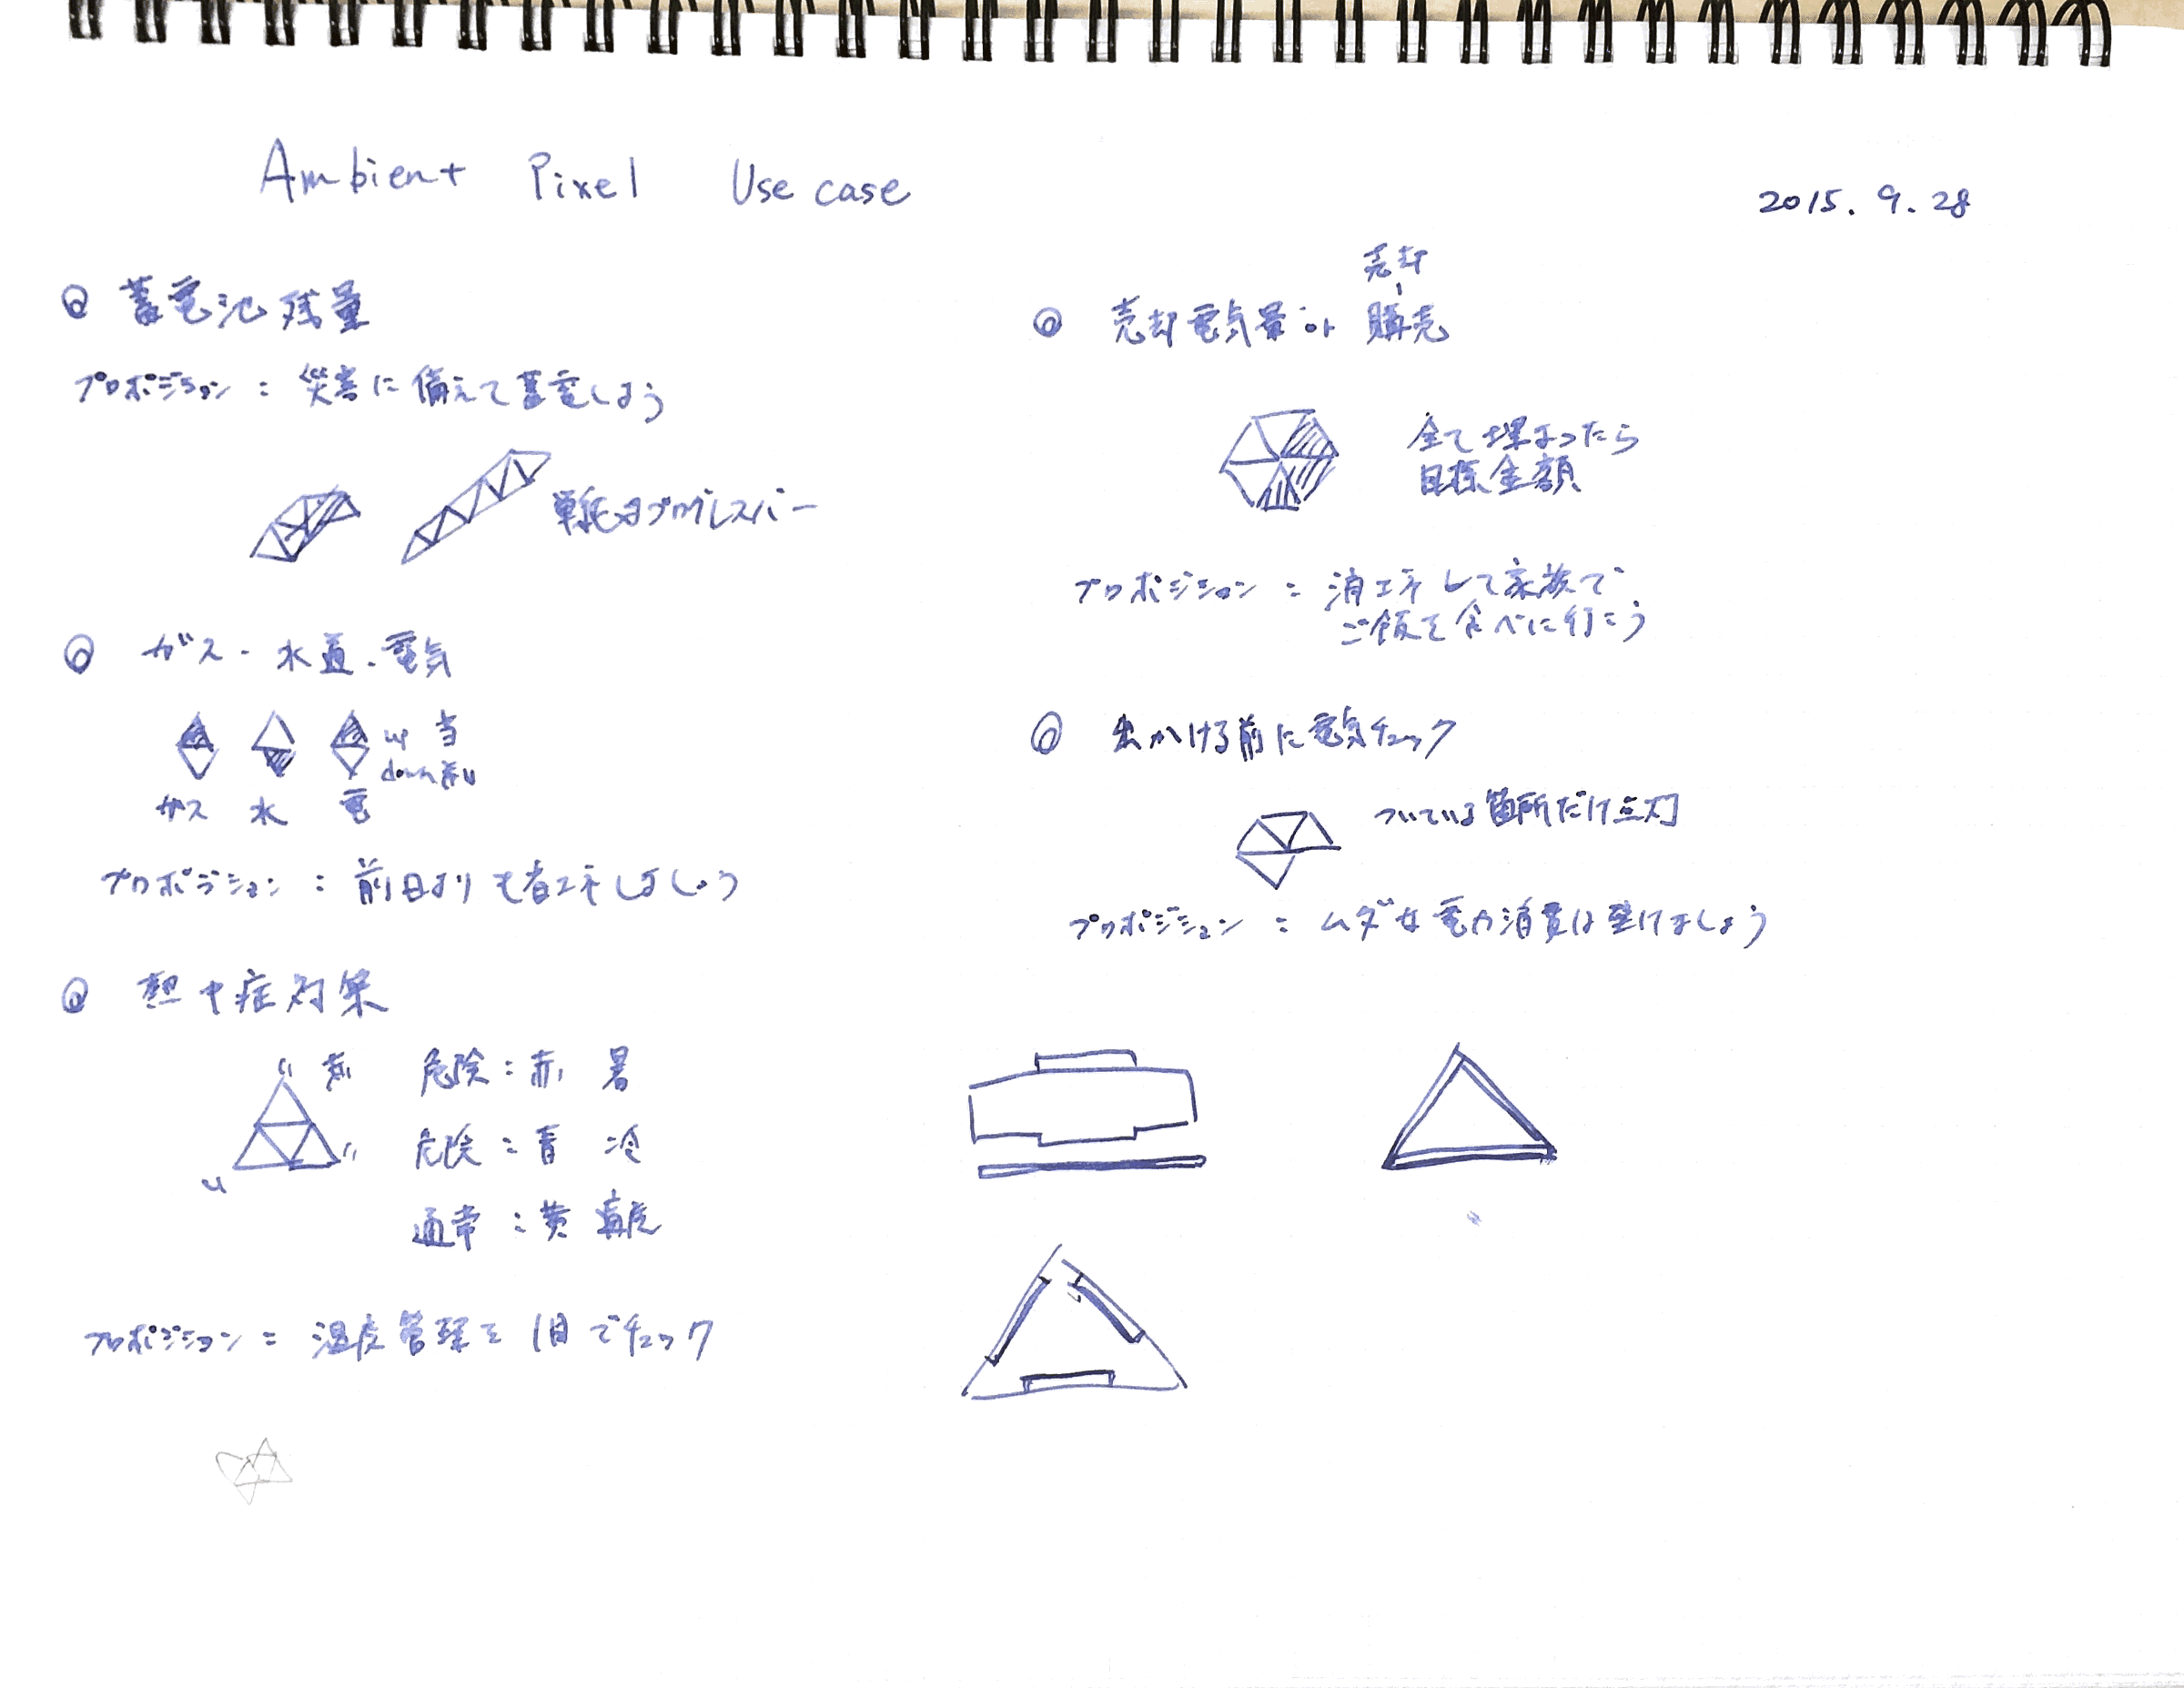 Ambient Pixel Use case
2015. 9. 28
◎ 蓄電池残量
プロポジション : 災害に備えて蓄電しよう
単純なプログレスバー
◎ ガス・水道・電気
up 当
down 前
ガス 水 電
プロポジション : 前日よりも省エネしましょう
◎ 熱中症対策
赤 危険 : 赤 暑
危険 : 青 冷
通常 : 黄 適度
プロポジション : 温度管理を1目でチェック
売却
◎ 売却電気量 or 購売
全て埋まったら
目標金額
プロポジション : 消エネして家族で
ご飯を食べに行こう
◎ 出かける前に電気チェック
ついている箇所だけ点灯
プロポジション : ムダな電力消費は避けましょう